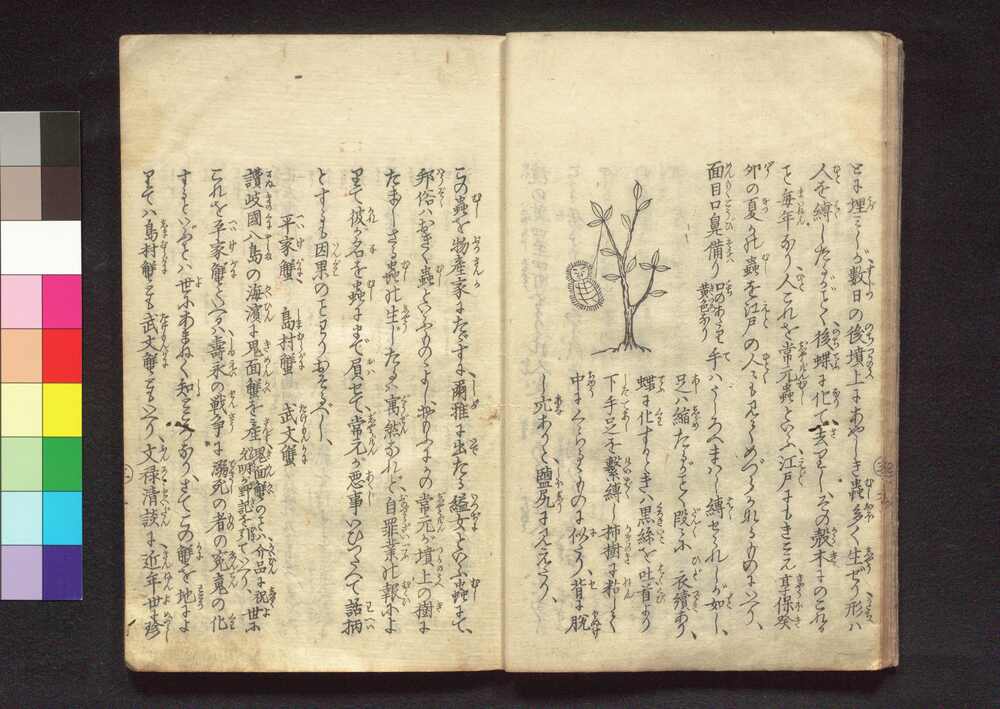 とに埋ミしが数日の後墳上にあやしき蟲多く生ぜり形ハ
人を縛したるがごとく後蝶に化て去りしその殻木にのこれる
を毎年あり人これを常元蟲といふ江戸にもきこえ享保癸
卯の夏か此蟲を江戸の人にも見るめづらかなるものにいへり
面目口鼻備り口のあたり黄色あり手ハうしろへまハし縛せられしが如し
足ハ縮たるがごとく段々に衣績あり
蝶に化するときハ黒絲を吐首より
下手足を繋縛し柿樹に粘して
中にくくるものに似たり背に脱
し穴ありて鹽尻に見えたり
この蟲を物産家にたゞすに爾雅に出たる縊女といふ蟲にて
邦俗ハおきく蟲といふものゝよし
たましさる蟲の生したるハ寓然なれと自罪業の報により
里て彼が名を蟲にまで屓せて常元が悪事いひつたへて話柄
とするも因果のことわりおそるべし
平家蟹 島村蟹 武文蟹
讃岐國八島の海濱に鬼面蟹を産 鬼面蟹のよし介品に祝允明が野記を引ていへり 世に
これを平家蟹といへるハ壽永の戦争に溺死の者の冤鬼の化
すといひて世にあまねく知ところなりさてこの蟹を地によ
里てハ島村蟹とも武文蟹ともいへり文禄清談に近年世に珍